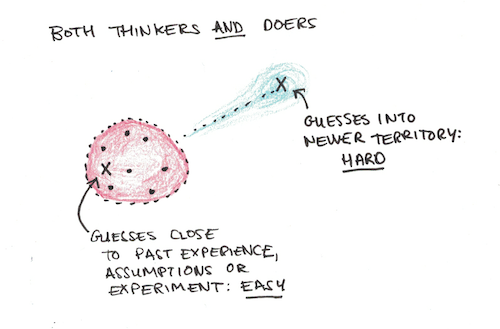 BOTH THINKERS AND DOERS
X
GUESSES INTO
NEWER TERRITORY:
HARD
X
GUESSES CLOSE
TO PAST EXPERIENCE,
ASSUMPTIONS OR
EXPERIMENT: EASY